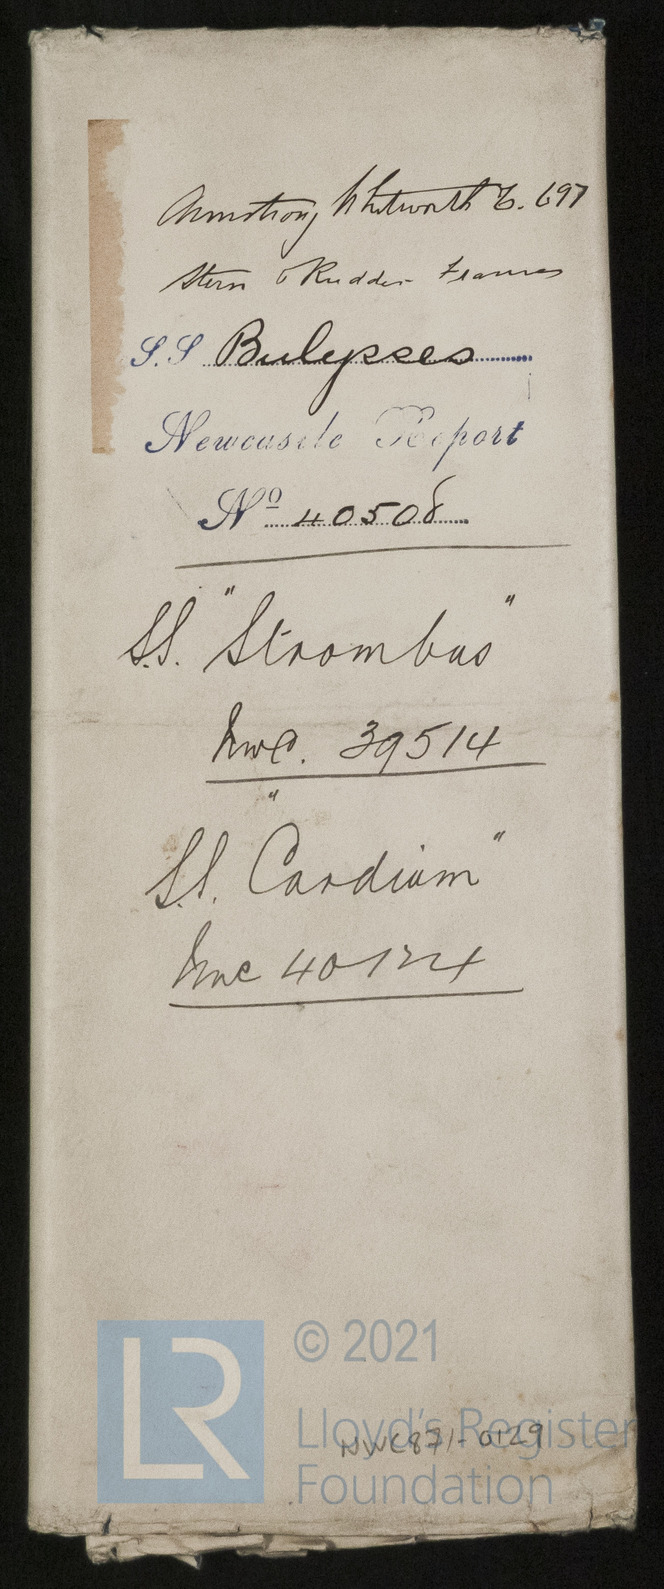 Armstrong Whitworth & Co. 697
Stern & Rudder Frames
S.S Bulysses
Newcastle Report
No 40508
S.S. "Strombus"
Nwc. 39514
S.S. "Cardium"
Nwc 40124
LR
© 2021
Lloyd's Register
Foundation
NWC871-0129